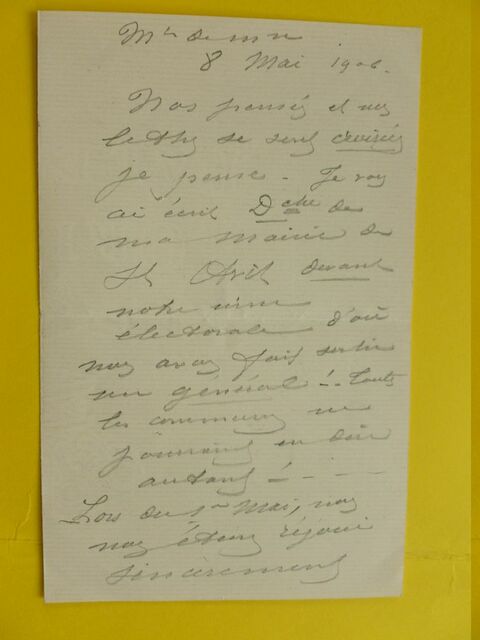 8 Mai 1906.
Nos pensées et nos
lettres se sont croisées
je pense. Je vous
ai écrit Dche de
ma Mairie de
St Avit devant
notre urne
électorale d'où
nous avons fait sortir
un général !.. Toutes
les communes ne
pourront en dire
autant !
Lors du 1er Mai, nous
nous étions réjouis
sincèrement